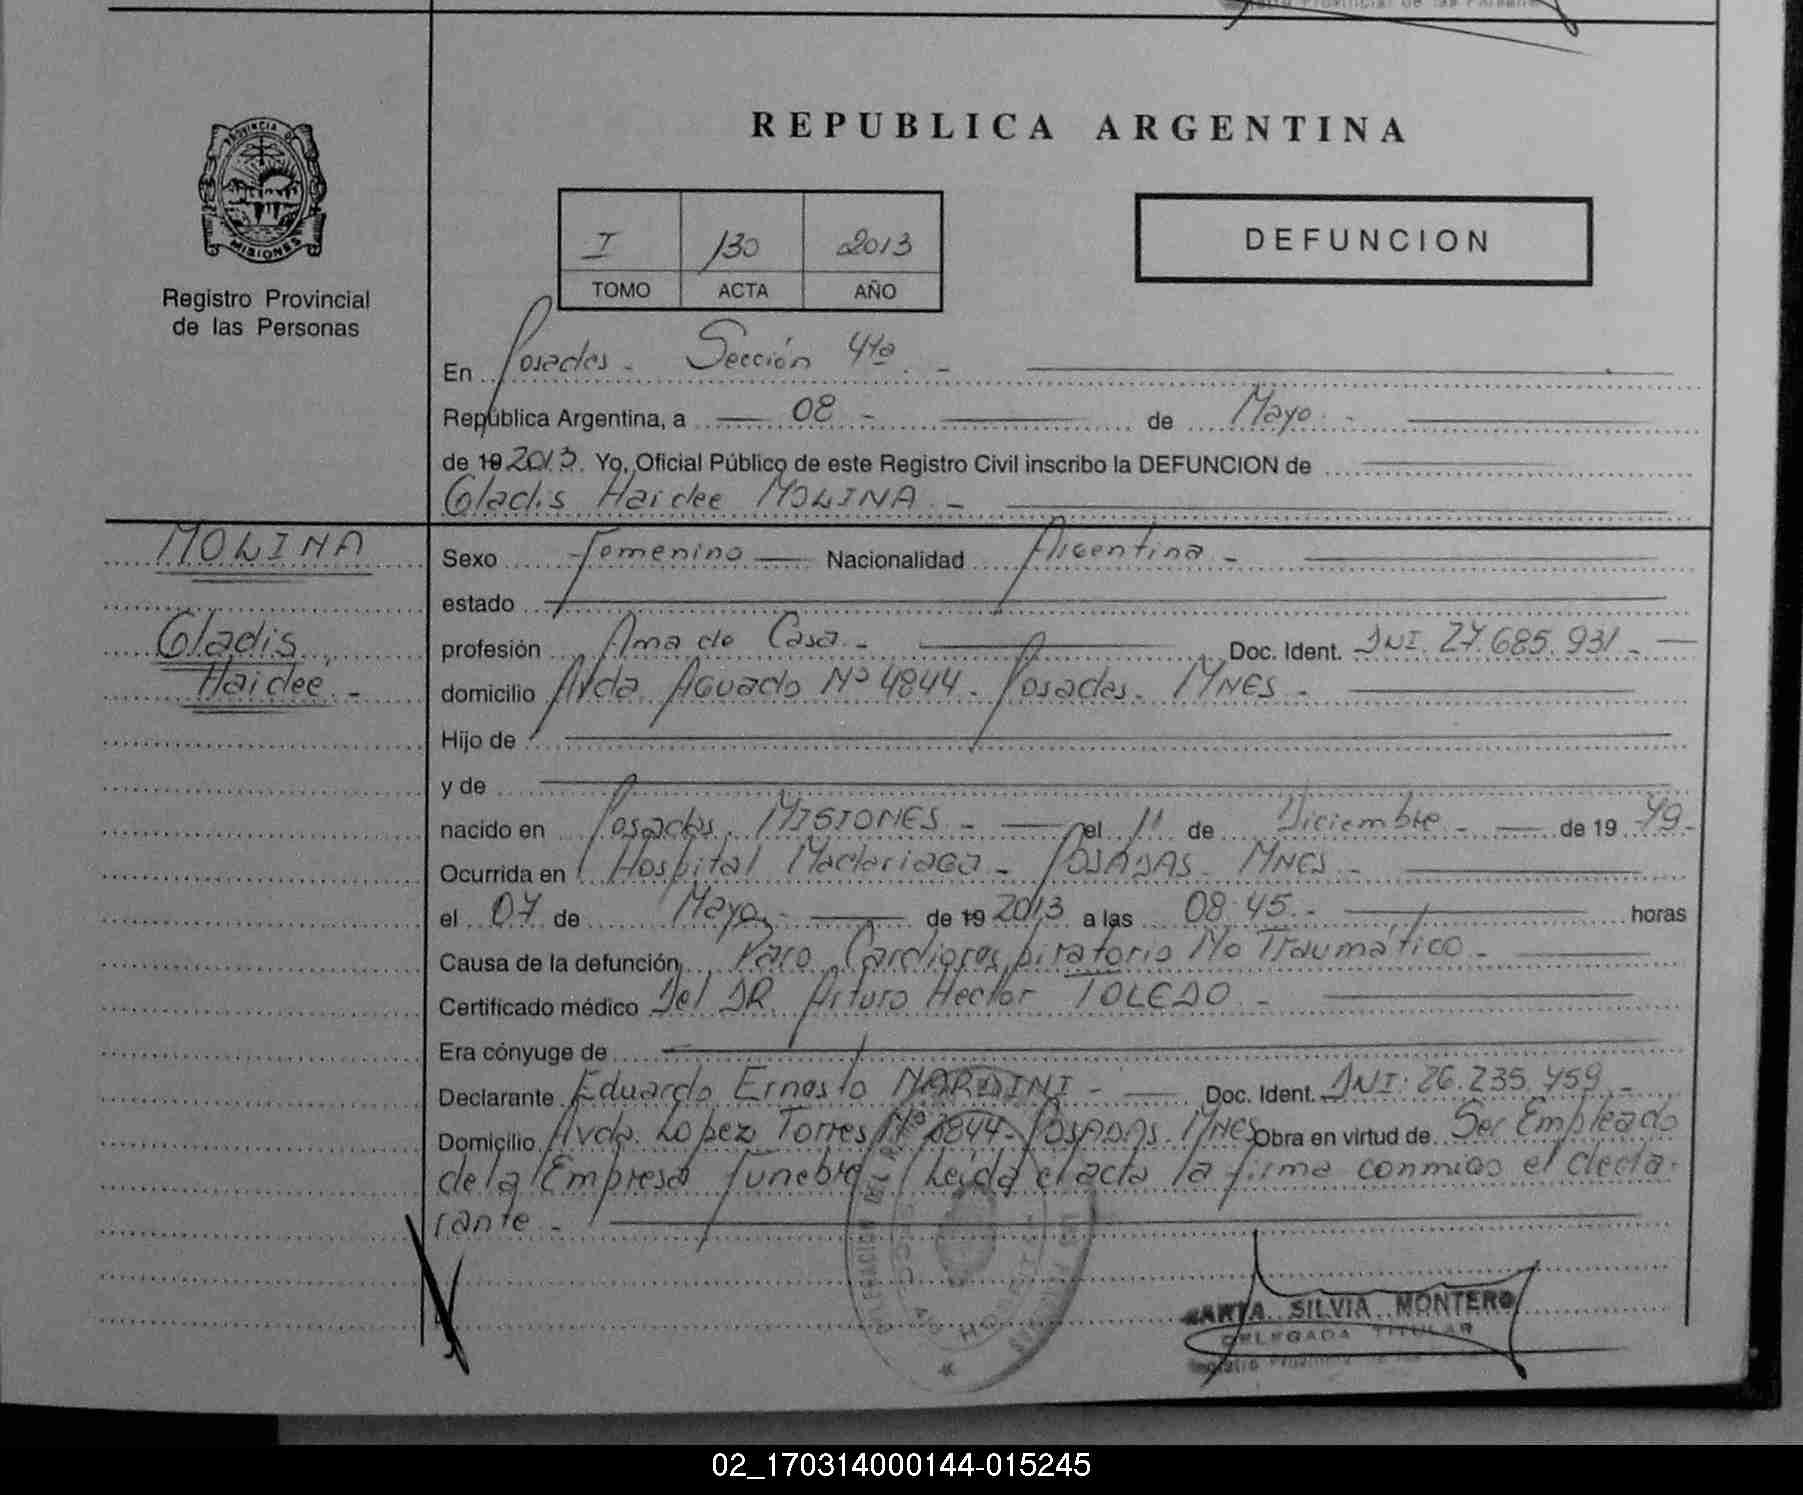 REPUBLICA ARGENTINA
PROVINCIA DE
MISIONES
Registro Provincial
de las Personas
I 130 2013
TOMO ACTA AÑO
DEFUNCION
En Posadas - Sección 4ta -
República Argentina, a 08 - de Mayo -
de 19 2013. Yo, Oficial Público de este Registro Civil inscribo la DEFUNCION de
Gladis Haidee MOLINA -
MOLINA
Gladis
Haidee. -
Sexo Femenino Nacionalidad Argentina -
estado
profesión Ama de Casa - Doc. Ident. DNI. 27.685.931 -
domicilio Avda. Aguado Nº 4844 - Posadas - MNES -
Hijo de
y de
nacido en Posadas, MISIONES - el 11 de Diciembre - de 19 79 -
Ocurrida en Hospital Madariaga - POSADAS - MNES -
el 07 de Mayo - de 19 2013 a las 08:45 - horas
Causa de la defunción Paro Cardiorespiratorio No Traumático -
Certificado médico Del DR. Arturo Hector TOLEDO -
Era cónyuge de
Declarante Eduardo Ernesto NARDINI - Doc. Ident. DNI: 26.235.759 -
Domicilio Avda. Lopez Torres Nº 2844 - POSADAS - MNES Obra en virtud de Ser Empleado
de la Empresa funebre / Leida el acta la firma conmigo el decla-
rante -
SILVIA MONTERO
DELEGADA TITULAR
02_170314000144-015245